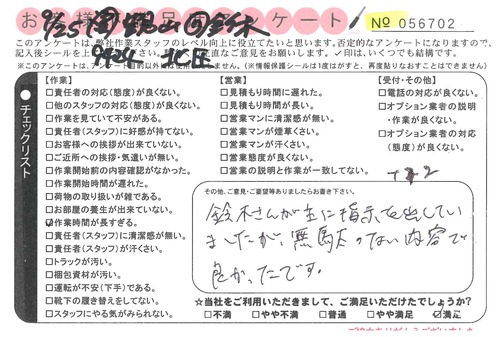 お 様 品 アンケート
No 056702
9/25
9/24 北区
このアンケートは、弊社作業スタッフのレベル向上に役立てたいと思います。否定的なアンケートになりますので、
記入後シールを
ご意見をお願いします。✓印は、いくつでも結構です。
※このアンケートは、
(※情報保護シールは1度がすと、再度貼りなおすことはできません)
チェックリスト
【作業】
□責任者の対応(態度)が良くない。
□他のスタッフの対応(態度)が良くない。
□作業を見ていて不安がある。
□責任者(スタッフ)に好感が持てない。
□お客様への挨拶が出来ていない。
□ご近所への挨拶・気遣いが無い。
□作業開始前の内容確認がなかった。
□作業開始時間が遅れた。
□荷物の取り扱いが雑である。
□お部屋の養生が出来ていない。
☑作業時間が長すぎる。
□責任者(スタッフ)に清潔感が無い。
□責任者(スタッフ)が汗くさい。
□トラックが汚い。
□梱包資材が汚い。
□運転が不安(下手)である。
□靴下の履き替えをしてない。
□スタッフにやる気がみられない。
【営業】
□見積もり時間に遅れた。
□見積もり時間が長い。
□営業マンに清潔感が無い。
□営業マンが煙草くさい。
□営業マンが汗くさい。
□営業態度が良くない。
□営業の説明と作業が一致してない。
【受付・その他】
□電話の対応が良くない。
□オプション業者の説明
・作業が良くない。
□オプション業者の対応
(態度)が良くない。
その他、ご意見・ご要望等ありましたらお書き下さい。
鈴木さんが主に指示を出してい
ましたが、無駄のない内容で
良かったです。
☆当社をご利用いただきまして、ご満足いただけたでしょうか?
□不満 □やや不満 □普通 □やや満足 ☑満足